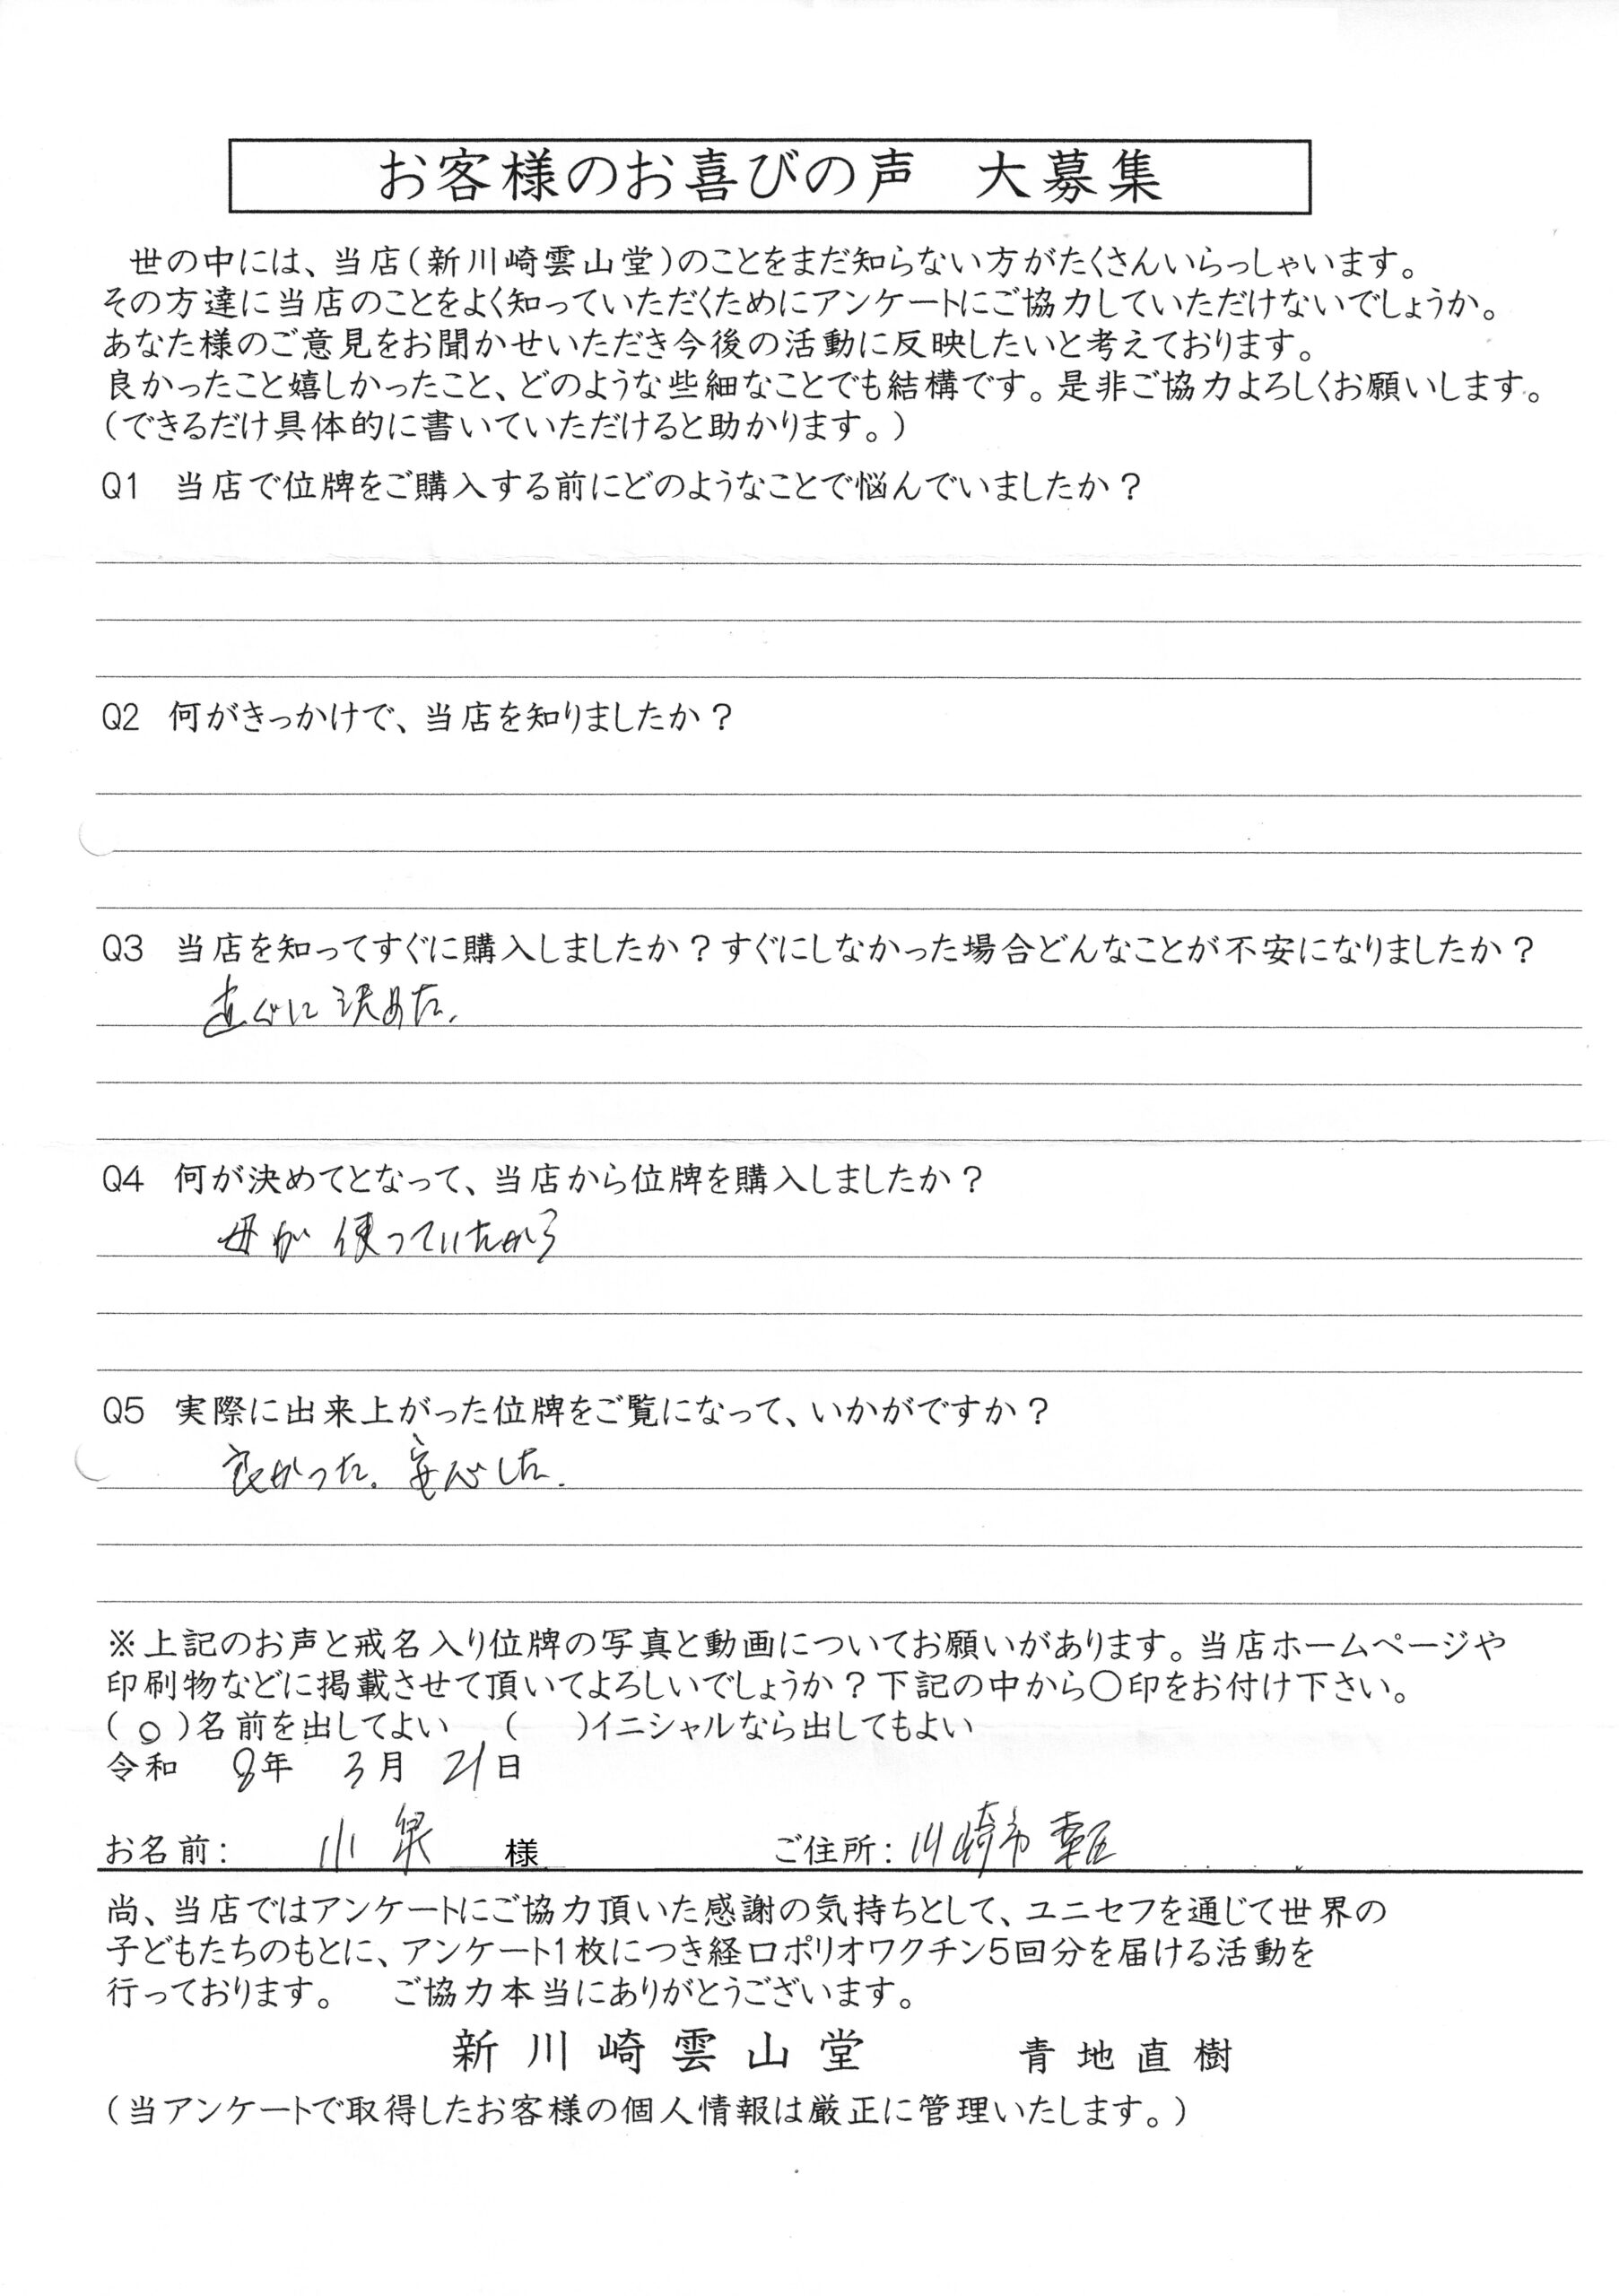 お客様のお喜びの声　大募集
世の中には、当店(新川崎雲山堂)のことをまだ知らない方がたくさんいらっしゃいます。
その方達に当店のことをよく知っていただくためにアンケートにご協力していただけないでしょうか。
あなた様のご意見をお聞かせいただき今後の活動に反映したいと考えております。
良かったこと嬉しかったこと、どのような些細なことでも結構です。是非ご協力よろしくお願いします。
(できるだけ具体的に書いていただけると助かります。)
Q1　当店で位牌をご購入する前にどのようなことで悩んでいましたか？
Q2　何がきっかけで、当店を知りましたか？
Q3　当店を知ってすぐに購入しましたか？すぐにしなかった場合どんなことが不安になりましたか？
直ぐに決めた。
Q4　何が決めてとなって、当店から位牌を購入しましたか？
母が使っていたから
Q5　実際に出来上がった位牌をご覧になって、いかがですか？
良かった。安心した.
※上記のお声と戒名入り位牌の写真と動画についてお願いがあります。当店ホームページや
印刷物などに掲載させて頂いてよろしいでしょうか？下記の中から〇印をお付け下さい。
(○)名前を出してよい　(　)イニシャルなら出してもよい
令和　8年　3月　21日
お名前：　小泉　様　ご住所：川崎市幸区
尚、当店ではアンケートにご協力頂いた感謝の気持ちとして、ユニセフを通じて世界の
子どもたちのもとに、アンケート1枚につき経口ポリオワクチン5回分を届ける活動を
行っております。　ご協力本当にありがとうございます。
新川崎雲山堂　青地直樹
(当アンケートで取得したお客様の個人情報は厳正に管理いたします。)